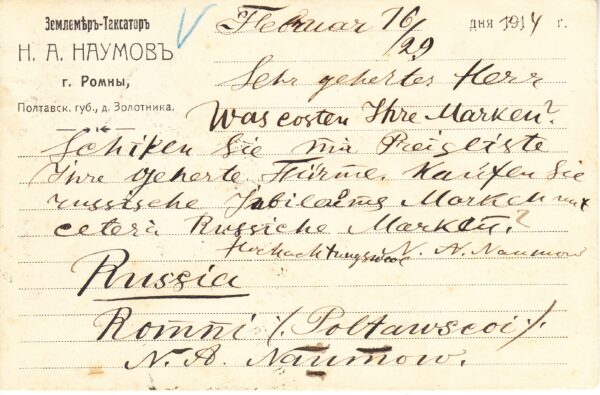 Землемѣръ-Таксаторъ
Н. А. НАУМОВЪ
г. Ромны,
Полтавск. губ., д. Золотника.
Februar 16/29 дня 1914 г.
Sehr gehertes Herr
Was costen Ihre Marken?
Schiken Sie mir Preisliste
Ihre geherte Firme. Kaufen Sie
russische Jubilaums Marken
cetera Russiche Marken?
N. A. Naumow
Russia
Romni (Poltawscoi).
N. A. Naumow.